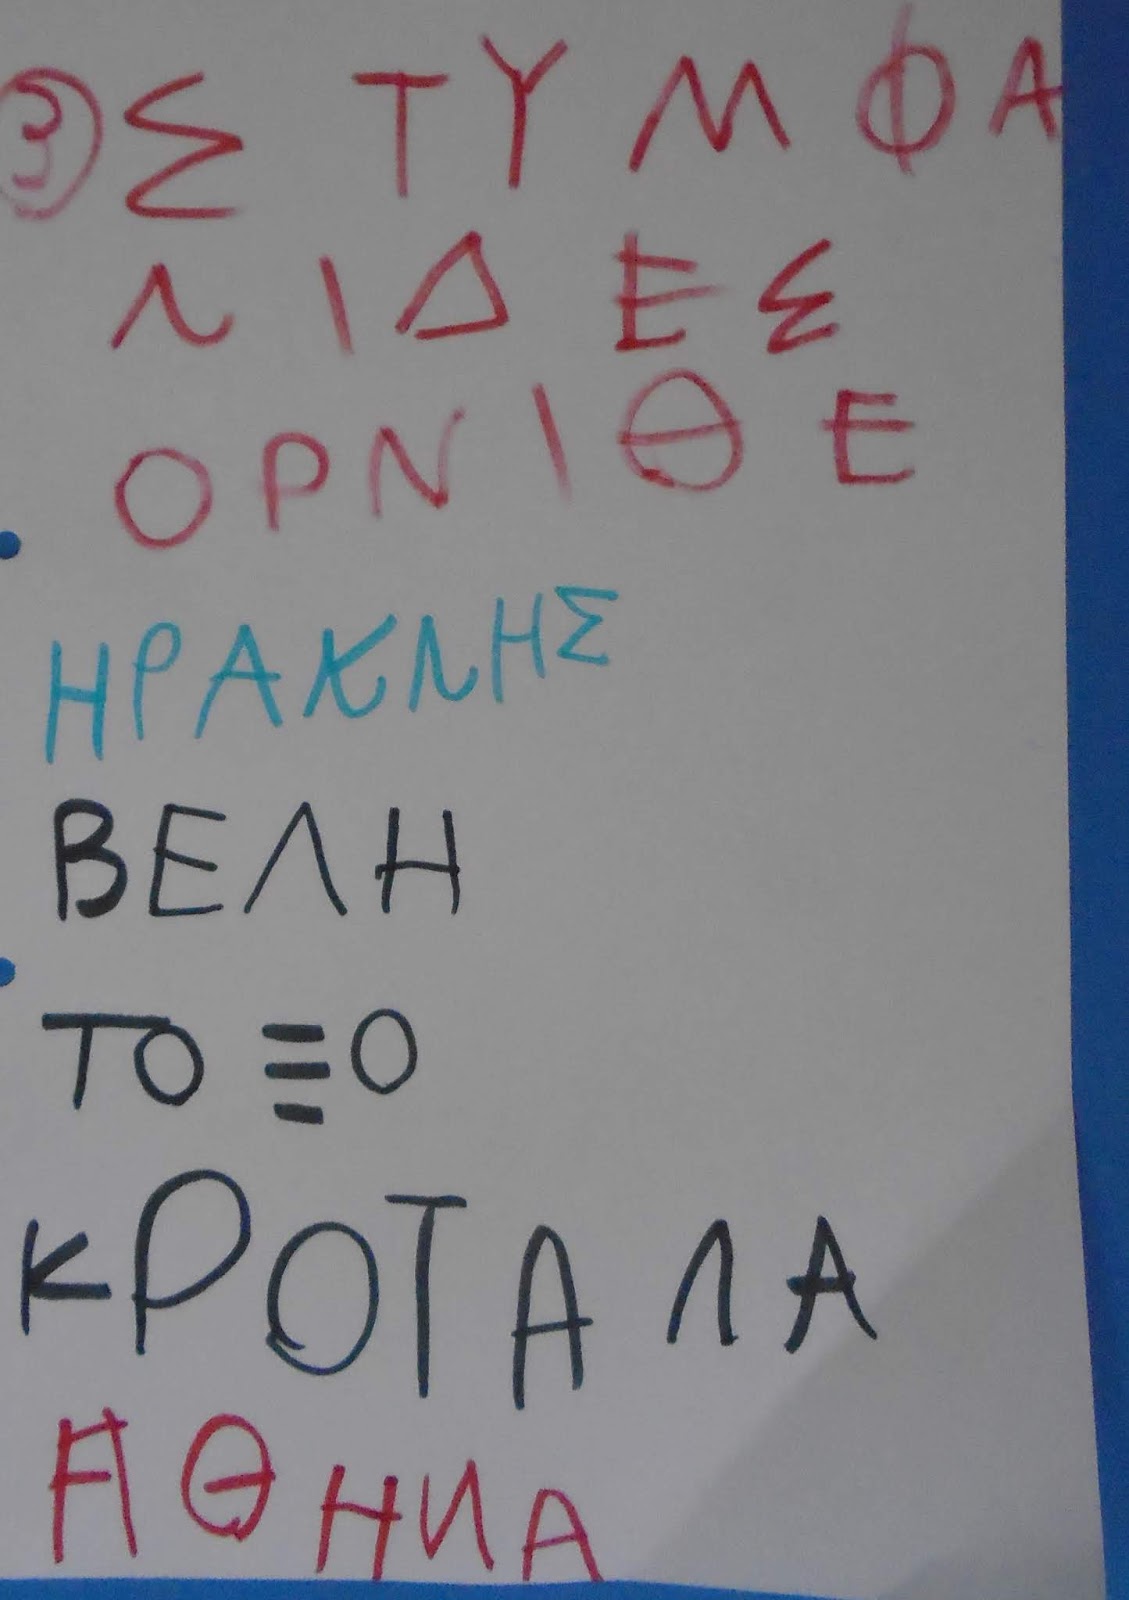 3 ΣΤΥΜΦΑ
ΛΙΔΕΣ
ΟΡΝΙΘΕ
ΗΡΑΚΛΗΣ
ΒΕΛΗ
ΤΟΞΟ
ΚΡΟΤΑΛΑ
ΑΘΗΝΑ